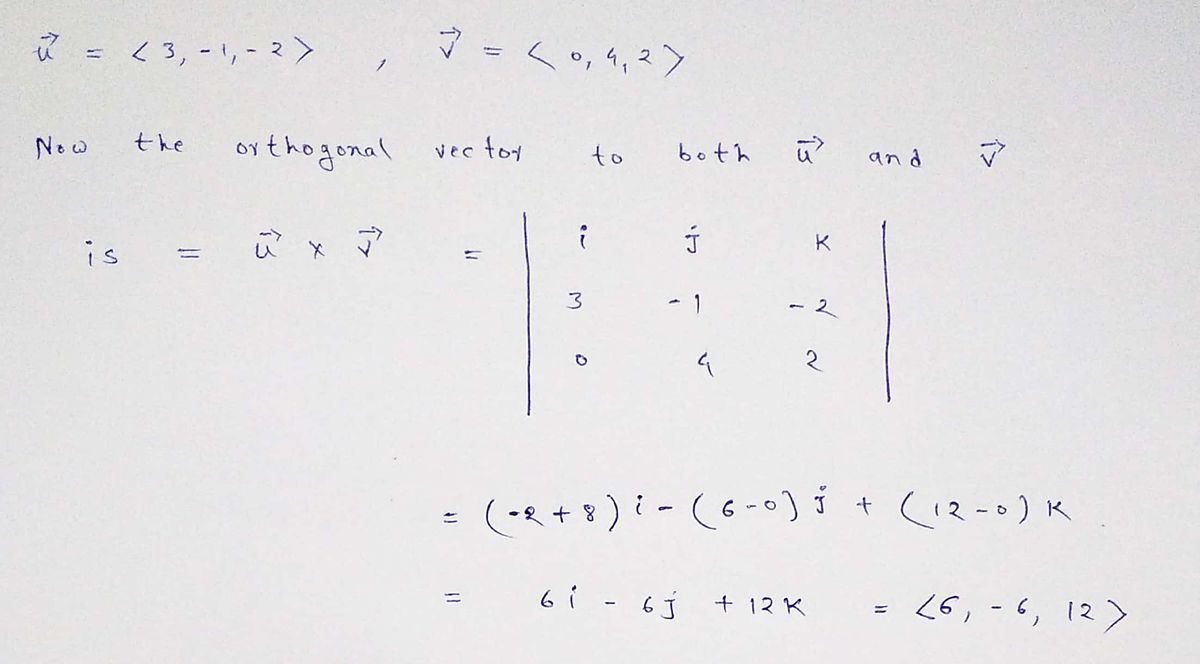 u⃗ = <3, -1, -2> , v⃗ = <0, 4, 2>
Now the orthogonal vector to both u⃗ and v⃗
is = u⃗ × v⃗ = | i j k |
| 3 -1 -2 |
| 0 4 2 |
= (-2+8) i - (6-0) j + (12-0) k
= 6i - 6j + 12k = <6, -6, 12>